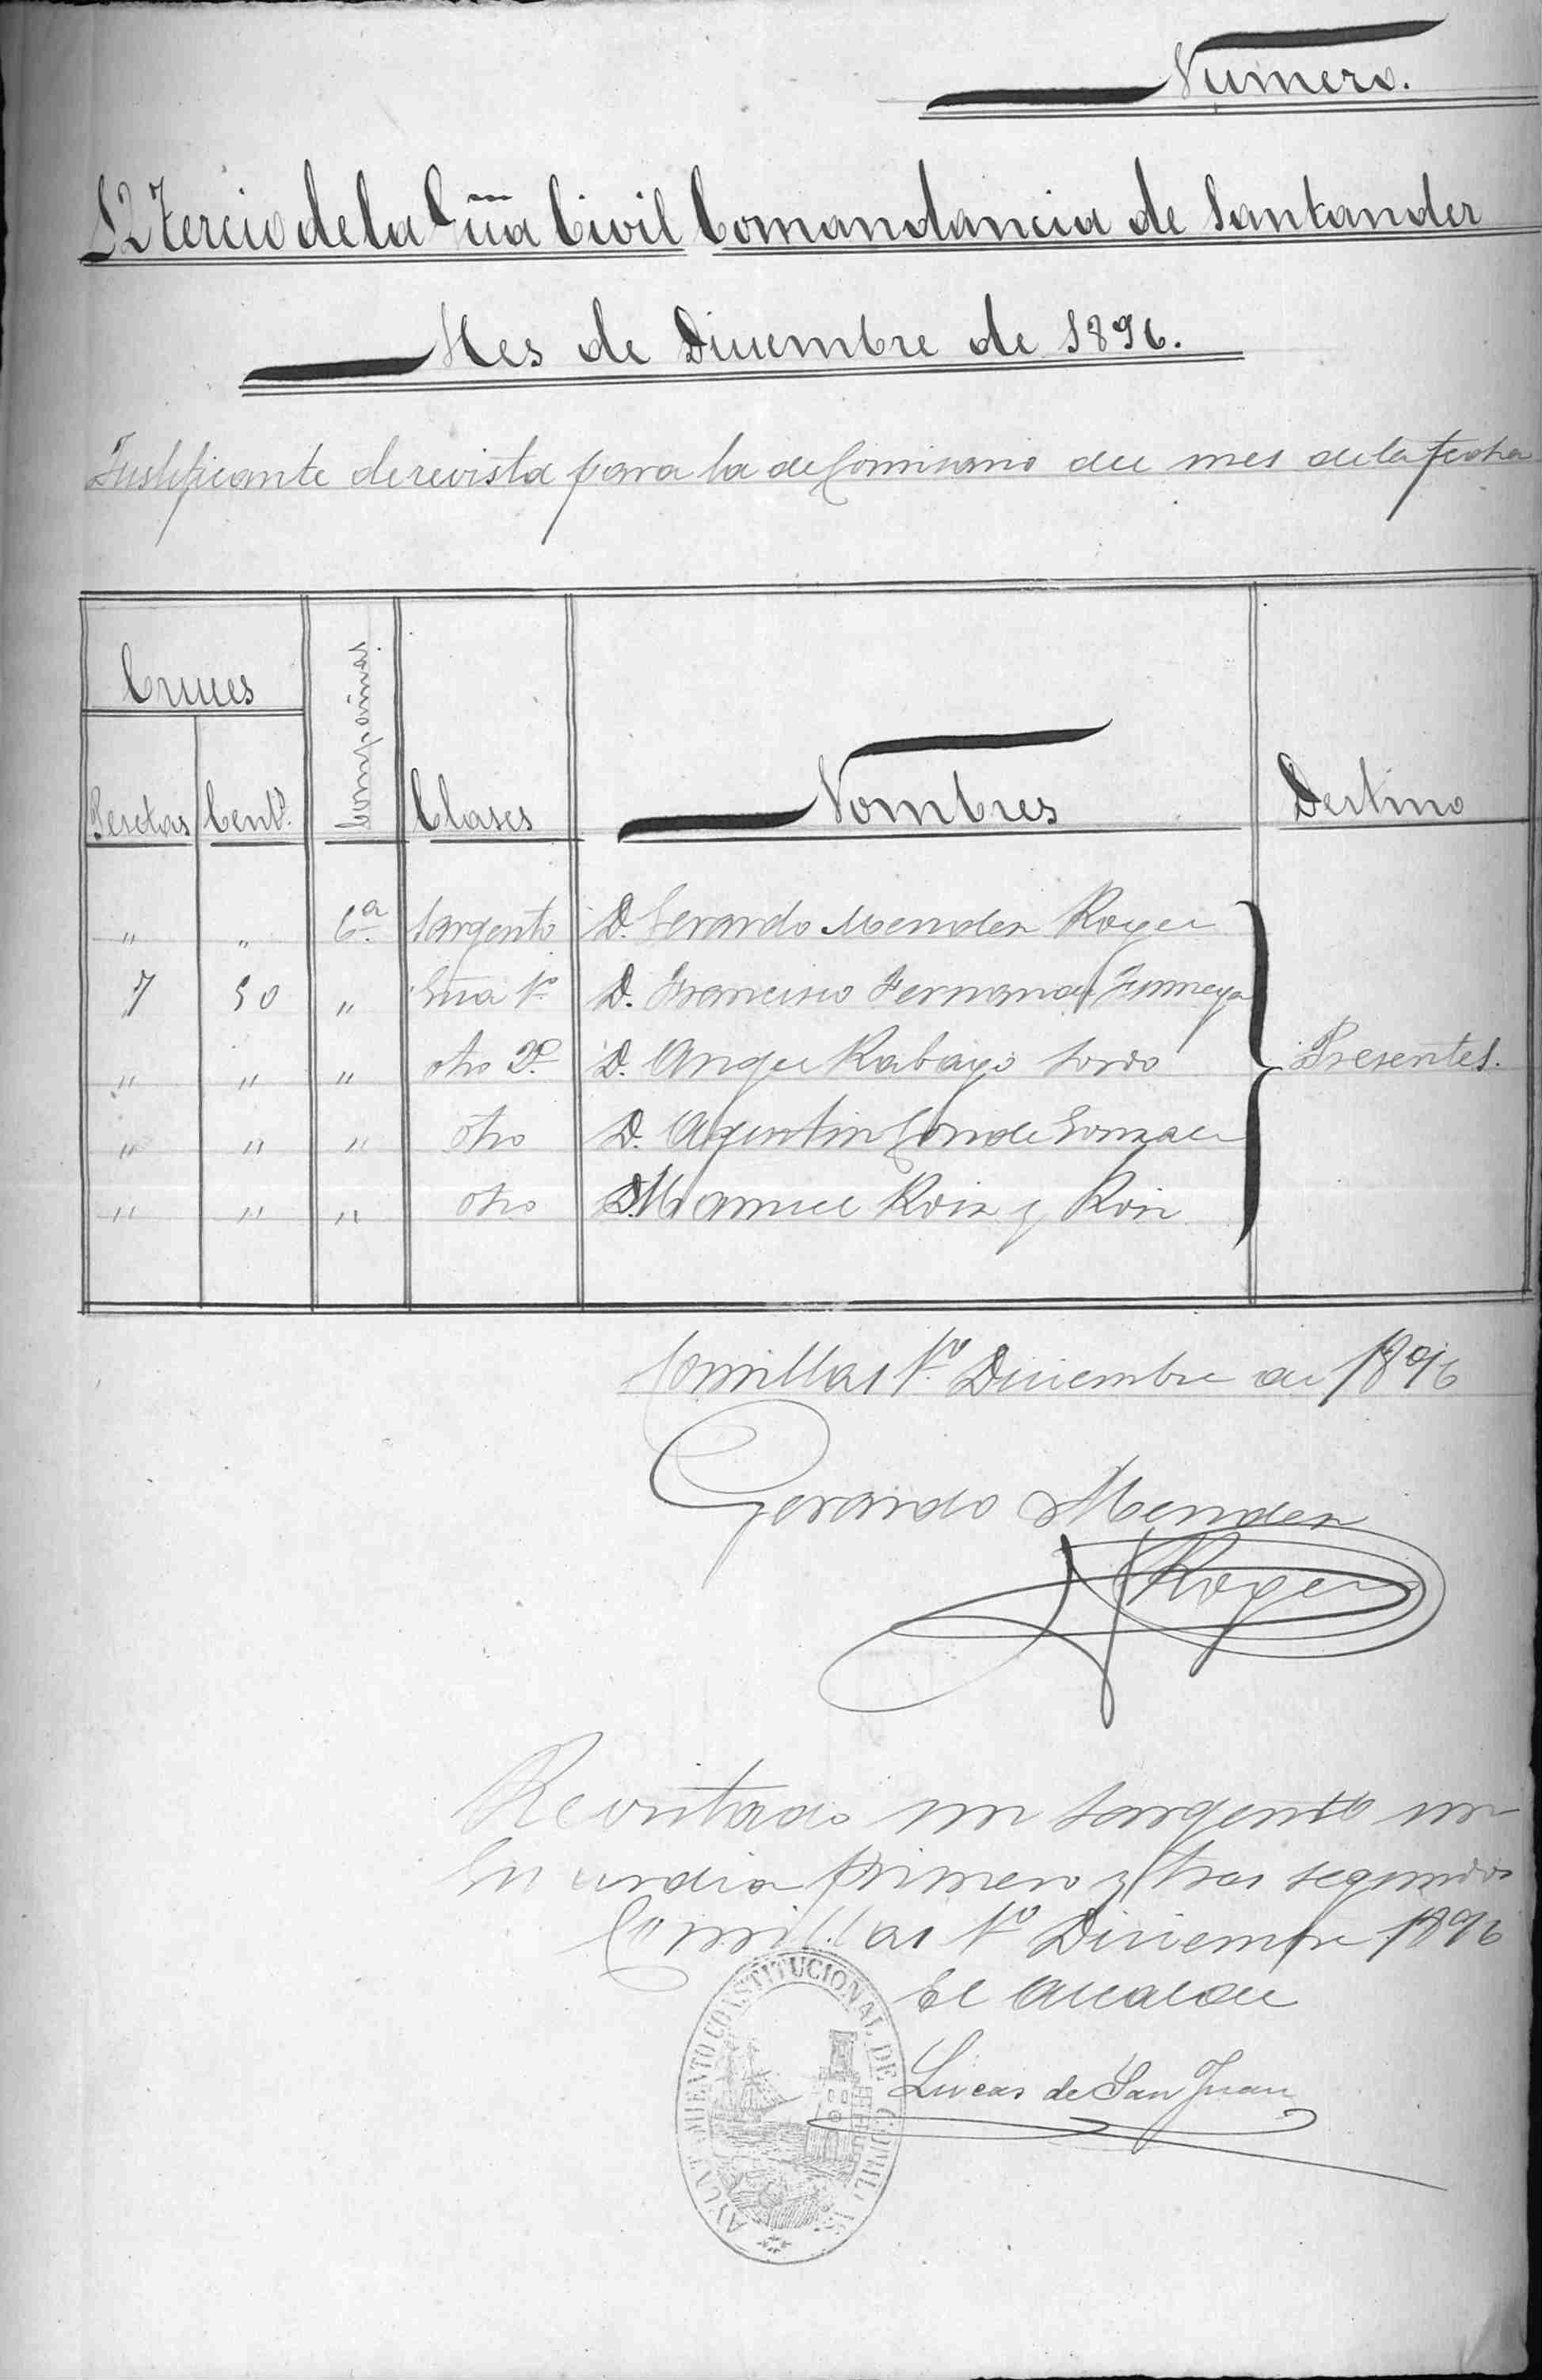 Numero.
12 Tercio de la Güa Civil Comandancia de Santander
Mes de Diciembre de 1896.
Justificante de revista para la de Comisario del mes de la fecha
Cruces
Compañias.
Pesetas Cents. Clases Nombres Destino
" " 6.a Sargento D. Gerardo Mendez Roger
7 50 " Güa 1º D. Francisco Fernandez
" " " otro 2º D. Angel Rabago Sordo Presentes.
" " " otro D. Agustin Conde Gonzalez
" " " otro D. Manuel Roiz y Roiz
Comillas 1º Diciembre de 1896
Gerardo Mendez
Roger
Revistado un Sargento un
Guardia primero y tres segundos
Comillas 1º Diciembre 1896
El Alcalde
Lucas de San Juan
AYUNTAMIENTO CONSTITUCIONAL DE COMILLAS